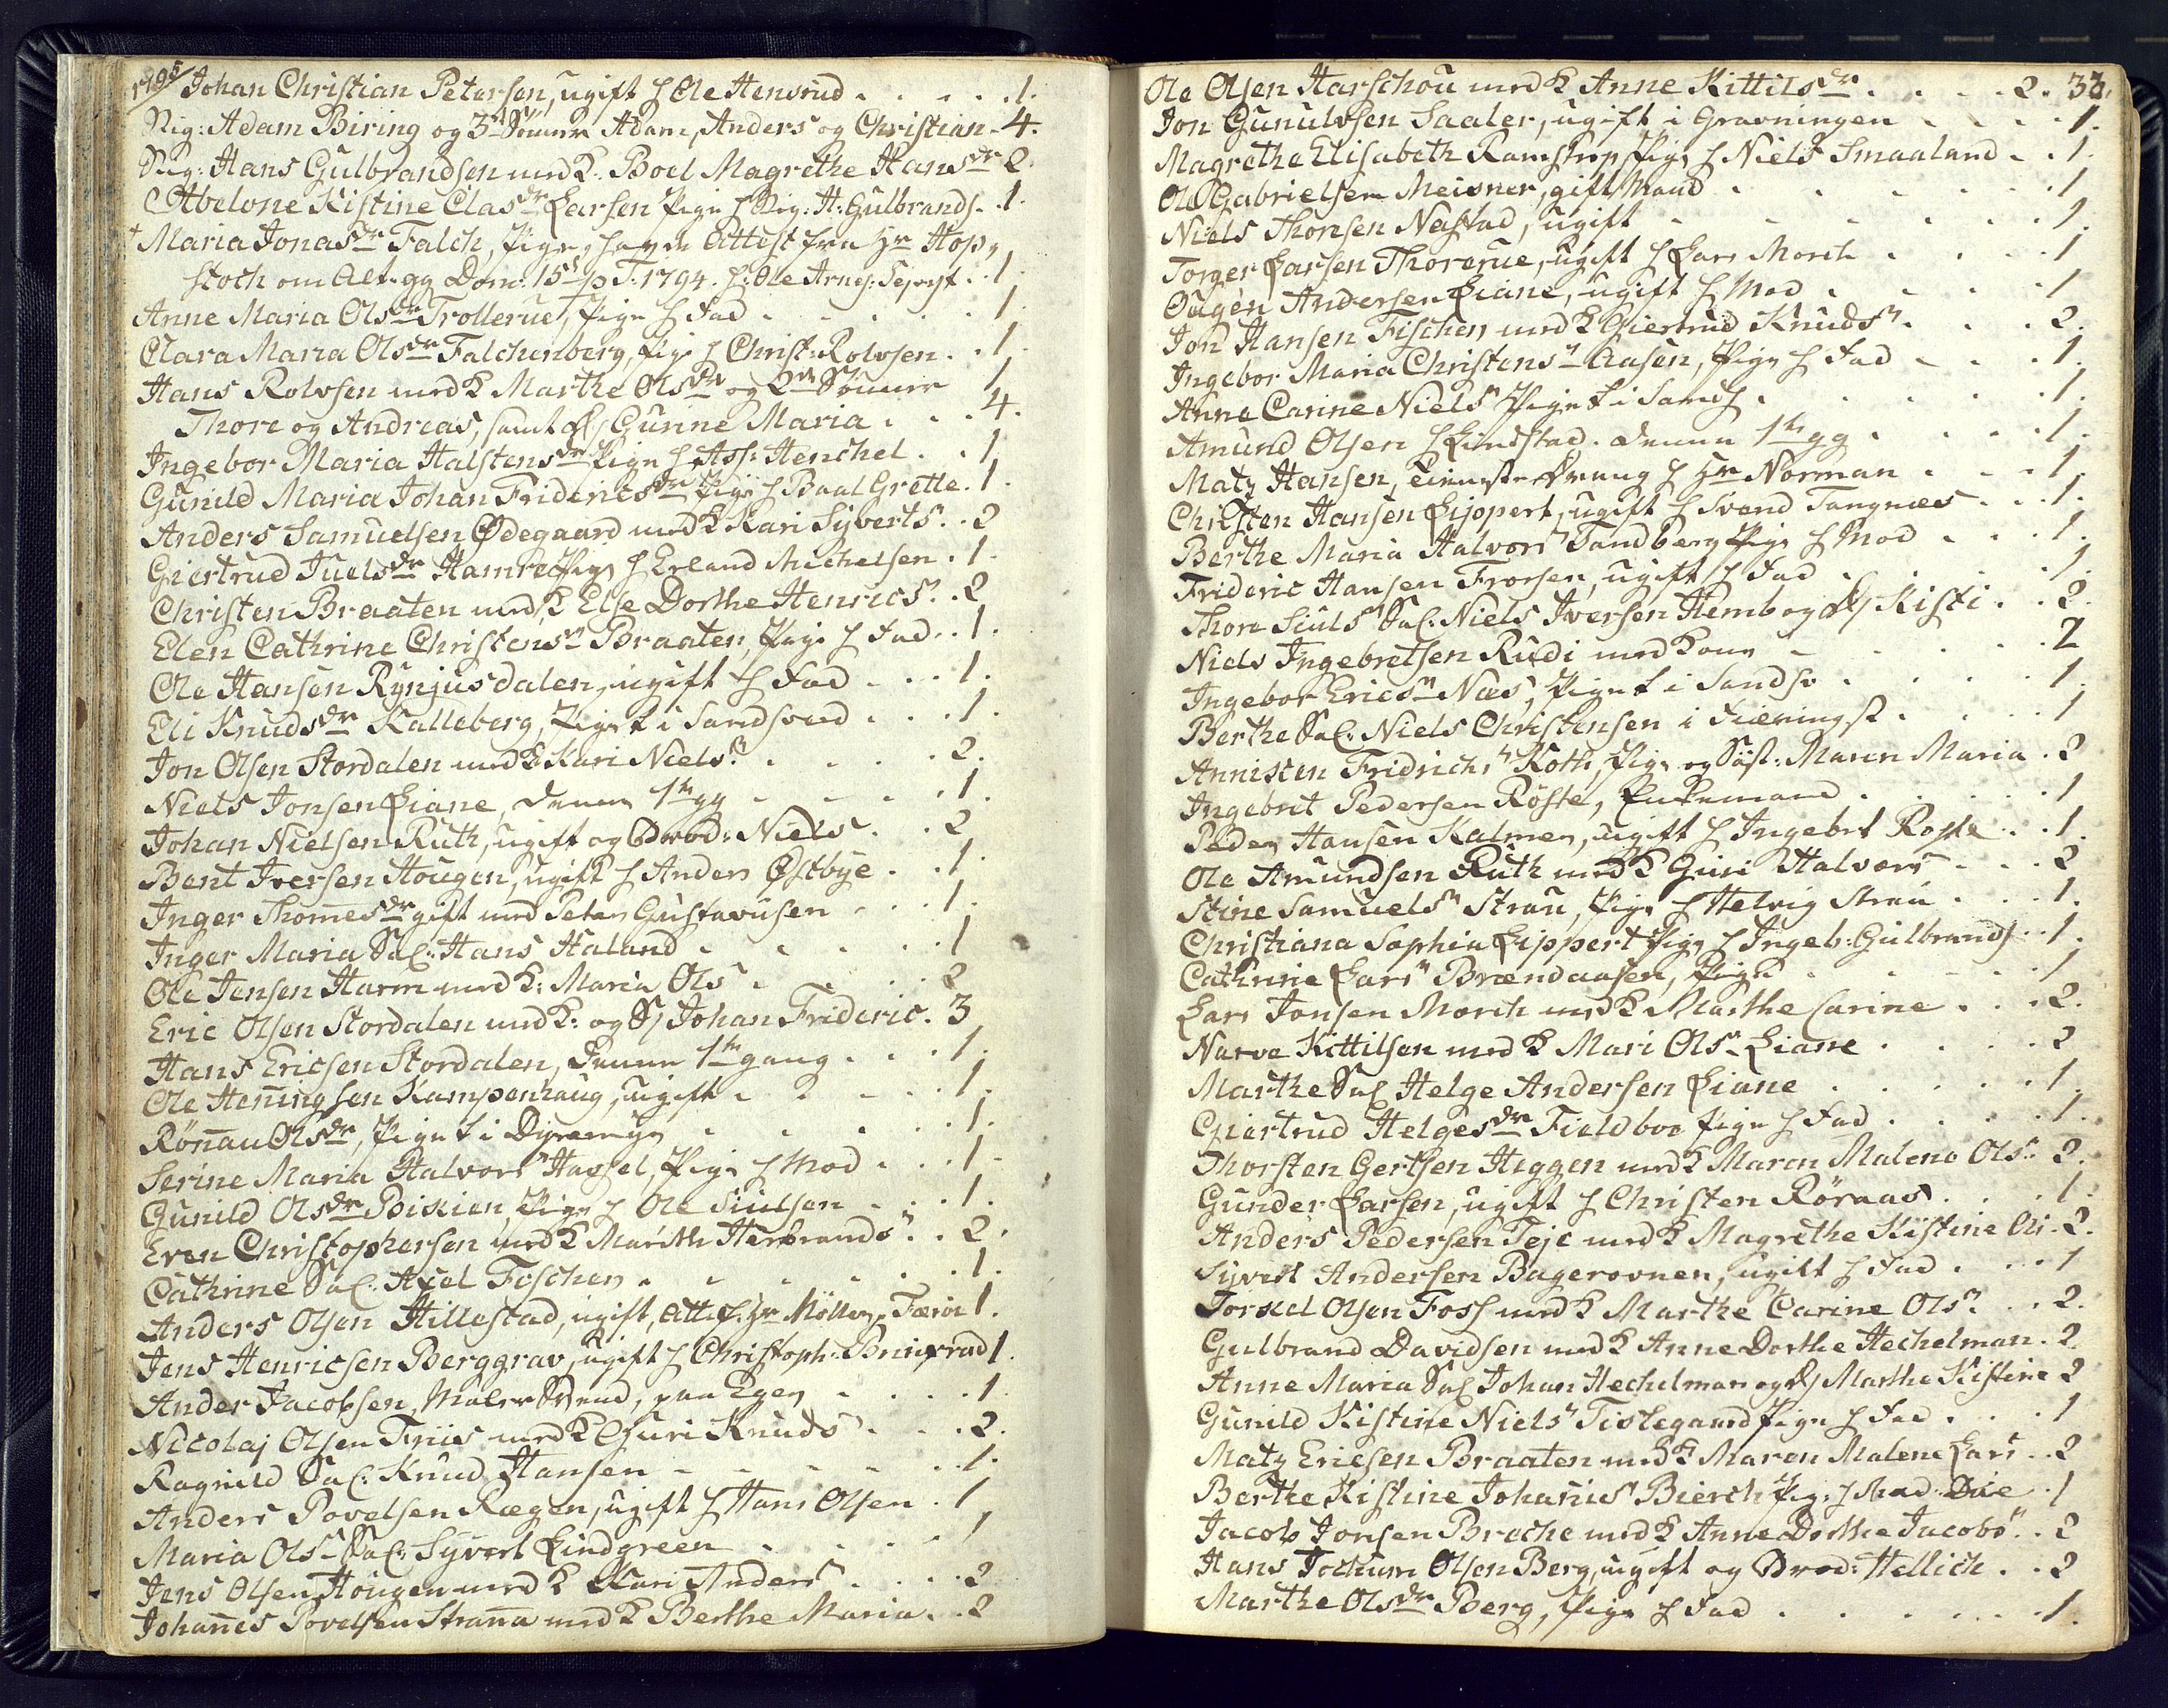 1795
Johan Christian Petersen, ugift h Ole Hensrud . . . . 1.
Sig: Adam Biring og 3de Sönner Adam, Anders og Christian - 4.
Sig: Hans Gulbrandsen med K. Boel Magrethe Hansdr 2.
Abelone Kistine Clasdr Larsen Pige h Sig: H: Gulbrands. . 1.
+ Maria Jonasdr Falch, Pige, havde Attest fra Hr Hop,
stoch om Alt. gg Dom: 15 p T. 1794. h: Ole Arnes: . . 1.
Anne Maria Olsdr Trollerud, Pige h Fad . . . . . 1.
Clara Maria Olsdr Falchenberg, Pige h Christ: Rolvsen . . 1.
Hans Rolvsen med K Marthe Olsdr og 2de Sönner 1
Thore og Andreas, samt D Gunne Maria . . . 4.
Ingebor Maria Halstensdr Pige h Ass: Henchel . . 1.
Gunild Maria Johan Fridericsdr Pige h Paal Grette . 1.
Anders Samuelsen Ødegaard med K Kari Syverts . . 2
Giertrud Juelsdr Hamre Pige h Erland Michelsen . 1.
Christen Braaten med K Else Dorthe Henrics . . 2
Elen Cathrine Christens Braaten, Pige h Fad . . 1.
Ole Hansen Rynjusdalen, ugift h Fad . . . 1.
Eli Knudsdr Kalleberg, Pige t i Sandsverd . . . 1.
Jon Olsen Stordalen med K Kari Niels . . . . 2.
Niels Jonsen Liane, denne 1te gg . . . . 1.
Johan Nielsen Ruth, ugift og Brod: Niels . . 2
Bent Iversen Hougen, ugift h Anders Østbye . . 1.
Inger Thomesdr gift med Peter Gustavusen . . . 1.
Inger Maria Sal: Hans Haland . . . . 1
Ole Jensen Harm med K: Maria Ols . . . . 2
Eric Olsen Stordalen med K: og S Johan Frideric . 3
Hans Ericsen Stordalen, denne 1te gang . . . 1.
Ole Heningsen Kampenhaug, ugift . . . . 1.
Rönnau Olsdr, Pige t i Dyremyr . . . . 1.
Serine Maria Halvors Hassel, Pige h Mod . . . 1.
Gunild Olsdr Poiskien, Pige h Ole Siulsen . . . 1.
Even Christophersen med K Marithe Herbrands . . 2.
Cathrine Sal: Axel Foschen . . . . . . 1.
Anders Olsen Hillestad, ugift, Att. f. Hr Möller, 1.
Jens Henricsen Berggrav, ugift h Christoph: 1.
Ander Jacobsen, Maler Svend, paa Egen . . . . 1
Nicolaj Olsen Friis med K Guri Knuds . . . 2.
Ragnild Sal: Knud Hansen . . . . . 1.
Anders Povelsen Ragen, ugift h Hans Olsen . 1
Maria Ols Sal: Syvert Lindgreen . . . . 1
Jens Olsen Hougen med K Kari Anders . . . . 2
Johannes Povelsen Stranna med K Berthe Maria . . 2
Ole Olsen Harschou med K Anne Kittilsdr . . . . 2. 33.
Jon Gunulvsen Saaler, ugift i Gravningen . . . . 1.
Magrethe Elisabeth Ramstrop Pige h Niels Smaaland . . 1.
Ole Gabrielsen Meisner, gift Mand . . . . . . 1
Niels Thorsen Nestad, ugift . . . . . . . 1.
Torger Larsen Thorerue, ugift h Lars Morch . . . . 1
Ougen Andersen Liane, ugift h Mod . . . . . 1
Jon Hansen Fischen med K Giertrud Knuds . . . 2.
Ingebor Maria Christens Aasen, Pige h Fad . . . 1.
Anne Carine Niels Pige t i Sands . . . . . 1.
Amund Olsen h Lindstad. denne 1te gg . . . . 1.
Matz Hansen, tieneste dreng h Hr Norman . . . 1.
Christen Hansen Lippert, ugift h Svend Tangnes . . . 1.
Berthe Maria Halvors Tandberg Pige h Mod . . . 1.
Frideric Hansen Frorsen, ugift h Fad . . . . 1.
Thore Siuls Sal: Niels Iversen Hemb og D Kisti . . 2.
Niels Ingebretsen Rudi med Kone . . . . . 2
Ingebor Erics Næs, Pige t i Sandsv . . . . . 1.
Berthe Sal: Niels Christensen i . . . . 1
Annisten Fridrichs Koth, Pige og Söst: Maren Maria . 2
Ingebret Pedersen Röste, Enkemand . . . . . 1
Peder Hansen Kalmer, ugift h Ingebret Roste . . 1.
Ole Amundsen Ruth med K Guri Halvors . . . 2
Stine Samuels Strau, Pige h Helvig Strau . . . 1.
Christiana Sophia Lippert Pige h Ingeb: Gulbrands . . 1.
Cathrine Lars Brændaasen, Pige . . . . . 1
Lars Jonsen Morch med K Marthe Carine . . . 2.
Narve Kittilsen med K Mari Ols Liane . . . . 2
Marthe Sal Helge Andersen Liane . . . . . 1.
Giertrud Helgesdr Fieldboe Pige h Fad . . . . 1.
Thorsten Gertsen Heggen med K Maren Malene Ols . 2.
Gunder Larsen, ugift h Christen Röraas . . . . 1.
Anders Pedersen Teje med K Magrethe Kistine Ol . 2.
Syvert Andersen Bagerovnen, ugift h Fad . . . . 1
Torkel Olsen Foss med K Marthe Carine Ols . . 2.
Gulbrand Davidsen med K Anne Dorthe Hechelman . 2.
Anne Maria Sal Johan Hechelman og D Marthe Kistine 2
Gunild Kistine Niels Tislegaard Pige h Fad . . . 1
Matz Ericsen Braaten med K Maren Malene Lars . . 2
Berthe Kistine Johannes Bierch Pige h Mad: Due . 1
Jacob Jonsen Broche med K Anne Dorthe Jacobs . . 2
Hans Jochum Olsen Berg, ugift og Brod: Hellich . . 2
Marthe Olsdr Berg, Pige h Fad . . . . . . . 1.